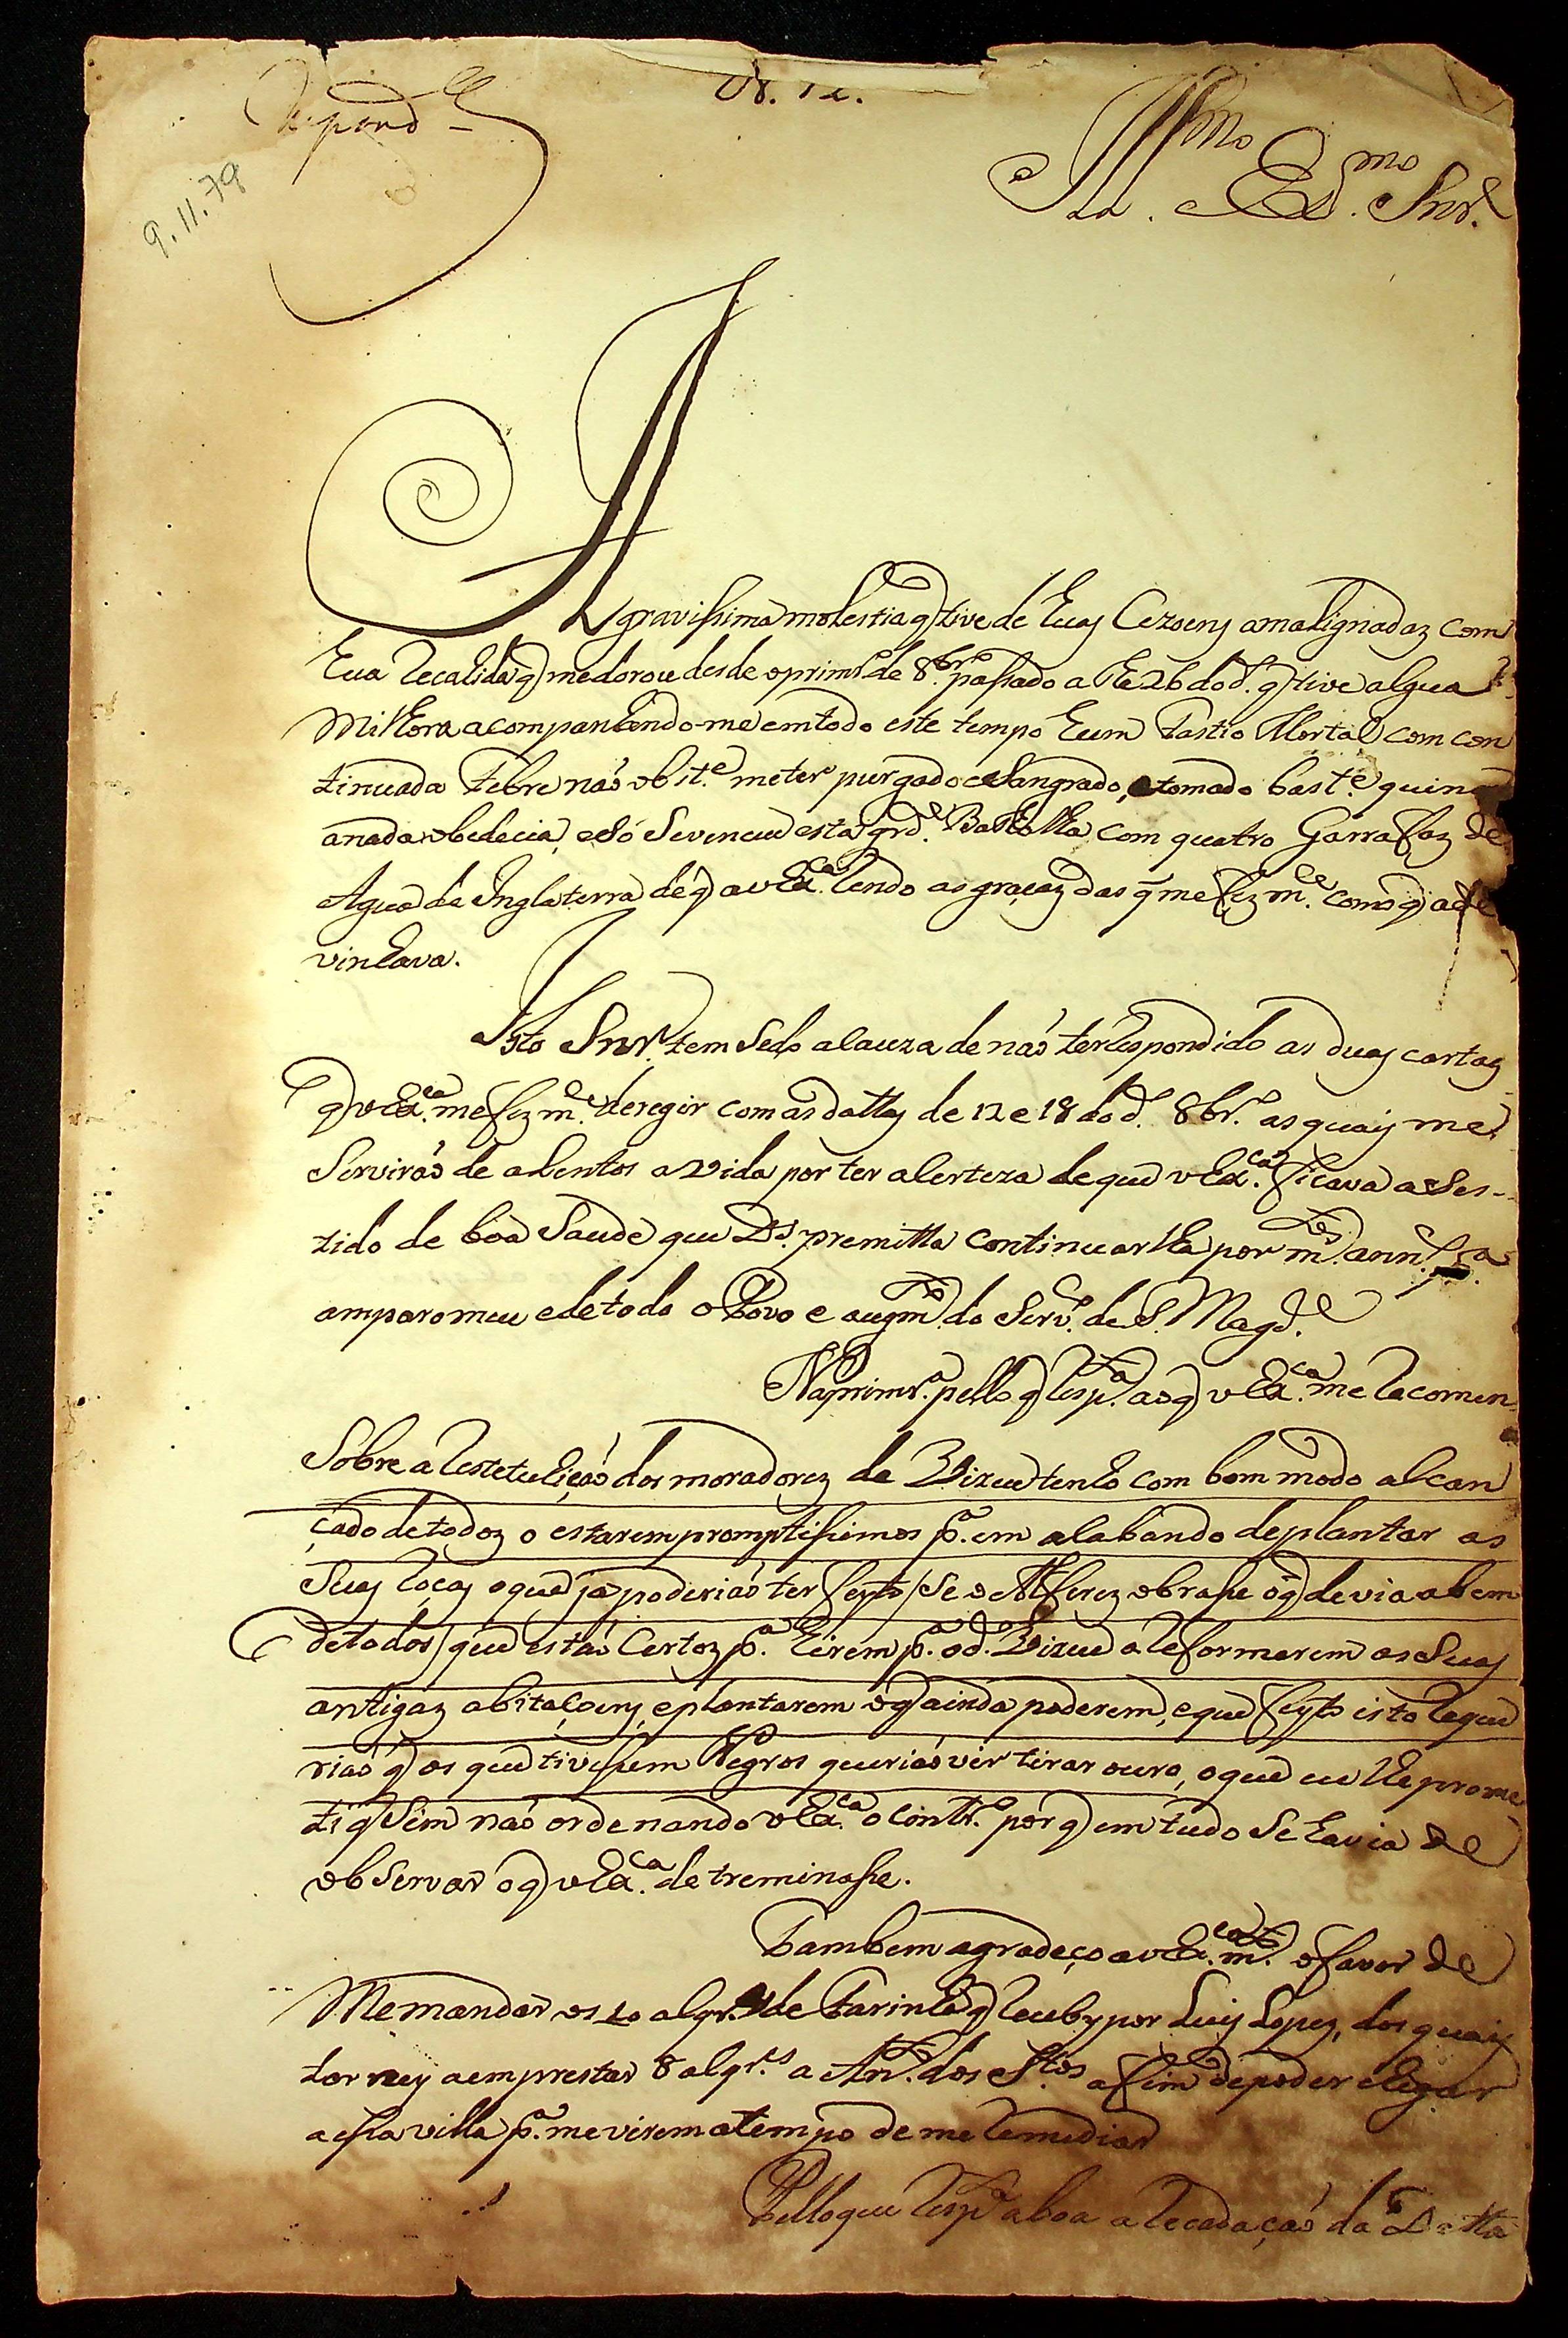 Respond.
9.11.79
Illmo
Exmo. Snr.
A gravissima molestia q tive de huas Cezoens amalignadaz com
hua recahida q me dorou desde o primro. de 8bro. passado athe 26 do do. q tive algua
milhora acompanhando-me em todo este tempo hum Fastio Mortal com con
tinuada Febre não obste. me ter purgado e Sangrado, e tomado baste. quina
a nada obedecia, e Só Se venceu esta grde. Batalha com quatro Garrafaz de
Agua de Inglaterra de q a v Exca. rendo as graçaz das q me fez mce. como q ade
vinhava.
Isto Snr. tem Sedo a cauza de não ter respondido as duas cartas
q v Exca. me fez mce. deregir com as dattas de 12 e 18 do do. 8bro. as quais me
Servirão de alentos a vida por ter a certeza de que v Exca. ficava asses-
tido de boa Saude que Ds. premitta continuar lha por ms. anns. pa.
amparo meu e de todo o Povo e augmto. do Servo. de S. Magde.
Na primra. pello q respta. ao q v Exca. me recomen
Sobre a restetuhição dos moradorez de Vizeu tenho com bom modo alcan
çado de todoz o estarem promptissimos pa. em acabando de plantar as
Suas roças o que ja poderião ter feyto / Se o Alferez obrasse o q devia a bem
de todos / que estão Certoz pa. hirem pa. o do. Vizeu a reformarem as Suas
antigaz abitaçoens, e plantarem o q ainda poderem, e que feyto isto reque
rião q os que tivessem Negros querião vir tirar ouro, o que eu lhe prome
ti q Sim não ordenando v Exca. o contro. por q em tudo Se havia de
observar o q v Exca. detreminasse.
Tambem agradeço a v Exca. mto. o favor de
Me mandar os 10 alqres. de Farinha q recuby por Luis Lopez, dos quais
torney a emprestar 8 alqres. a Anto. dos Stos. a fim de poder chegar
a essa villa pa. me virem a tempo de me remediar
Pello que respta. a boa arecadação da Datta